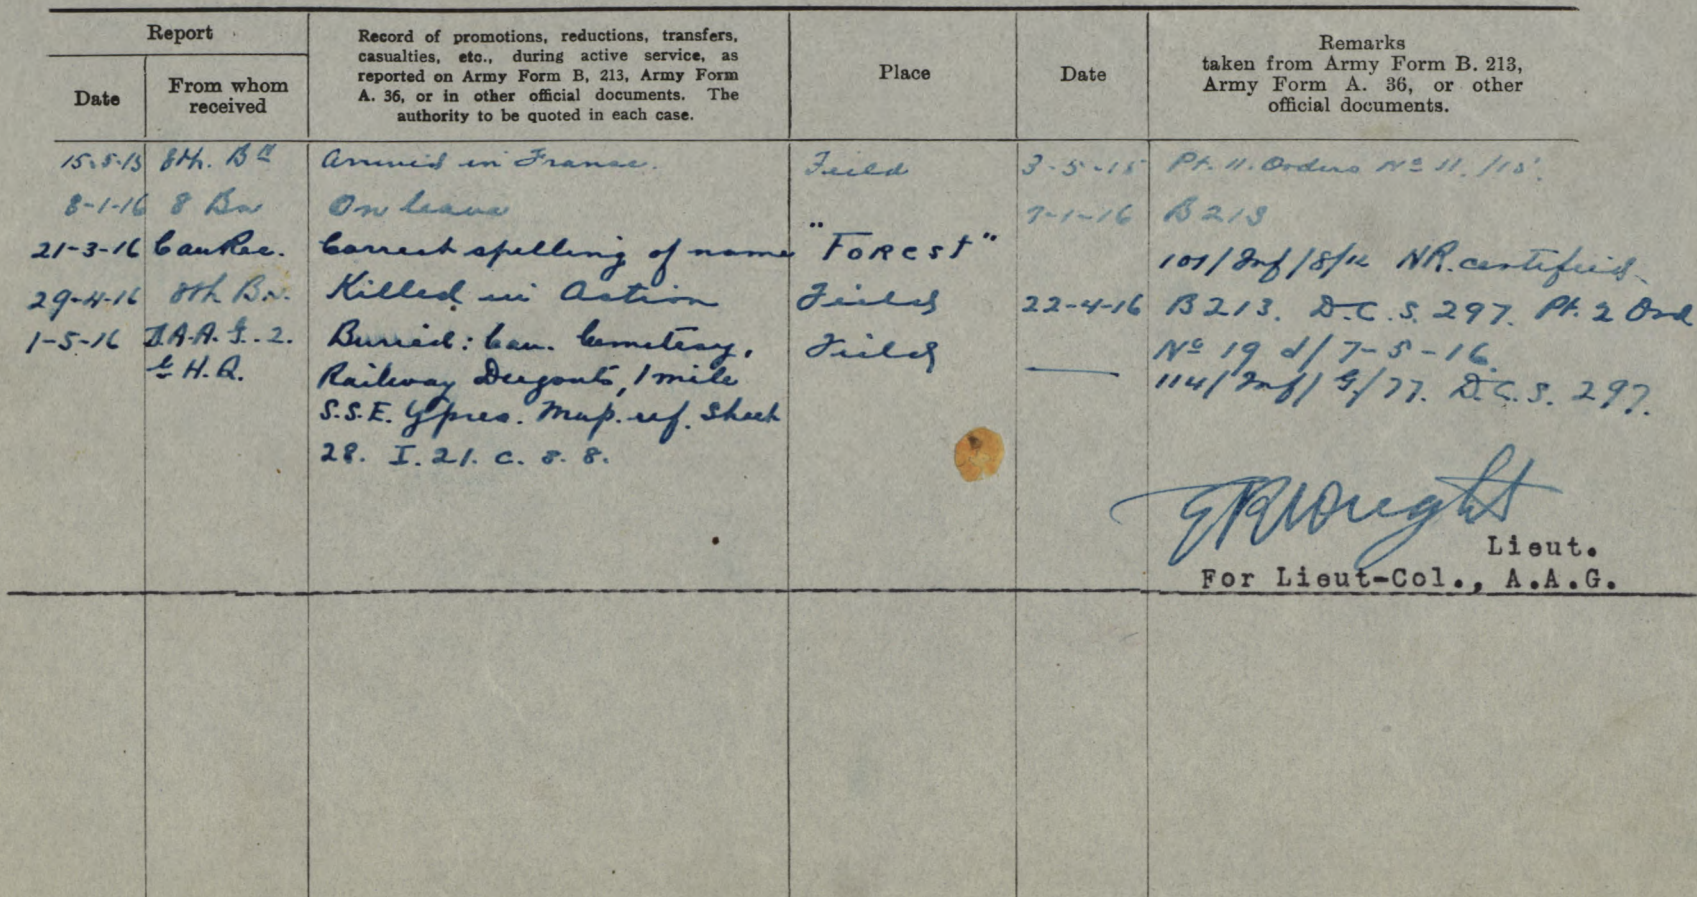 Report
Date
From whom
received
Record of promotions, reductions, transfers,
casualties, etc., during active service, as
reported on Army Form B, 213, Army Form
A. 36, or in other official documents. The
authority to be quoted in each case.
Place
Date
Remarks
taken from Army Form B. 213,
Army Form A. 36, or other
official documents.
15-5-15 8th. Bn Arrived in France. Field 3-5-15 Pt. 11. Orders No 11./15.
8-1-16 8 Bn On leave 7-1-16 B 213
21-3-16 Can Rec. Correct spelling of name "Forest" 101/Inf/8/ NR. certified
29-4-16 8th Bn. Killed in Action Field 22-4-16 B 213. D.C.S. 297. Pt. 2 Ord
1-5-16 D.A.A.G. 2. Buried: Can. Cemetery, Field — No 19 d/7-5-16.
G.H.Q. Railway Dugouts, 1 mile 114/Inf/G/77. D.C.S. 297.
S.S.E. Ypres. Map. ref. Sheet
28. I. 21. c. 8. 8.
Lieut.
For Lieut-Col., A.A.G.